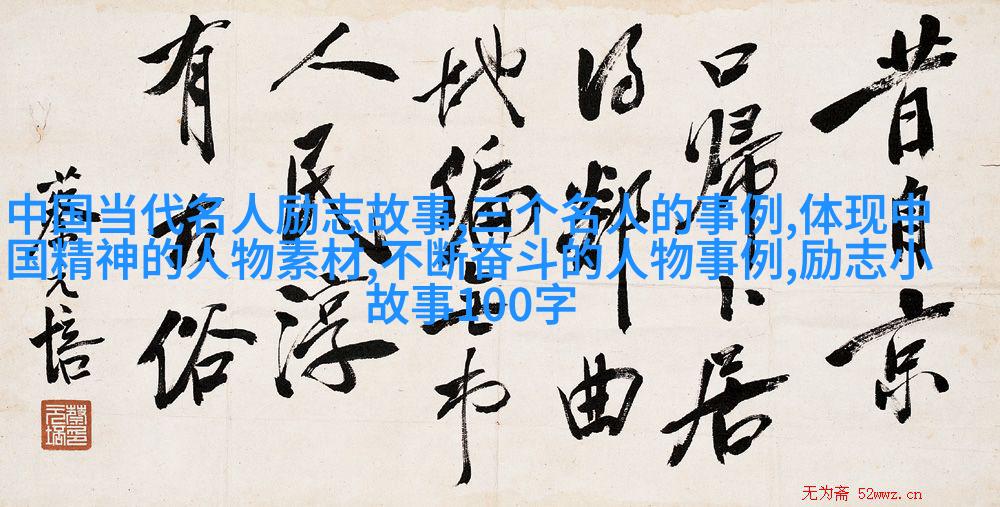 中国当代名人励志故事,三个名人的事例,体现中
国精神的人物素材,不断奋斗的人物事例,励志小
故事100字
昔自京
口歸卜居
得鄰曲
地偏市
人民淳
有俗
蔡元培
无为斋 52wwz.cn